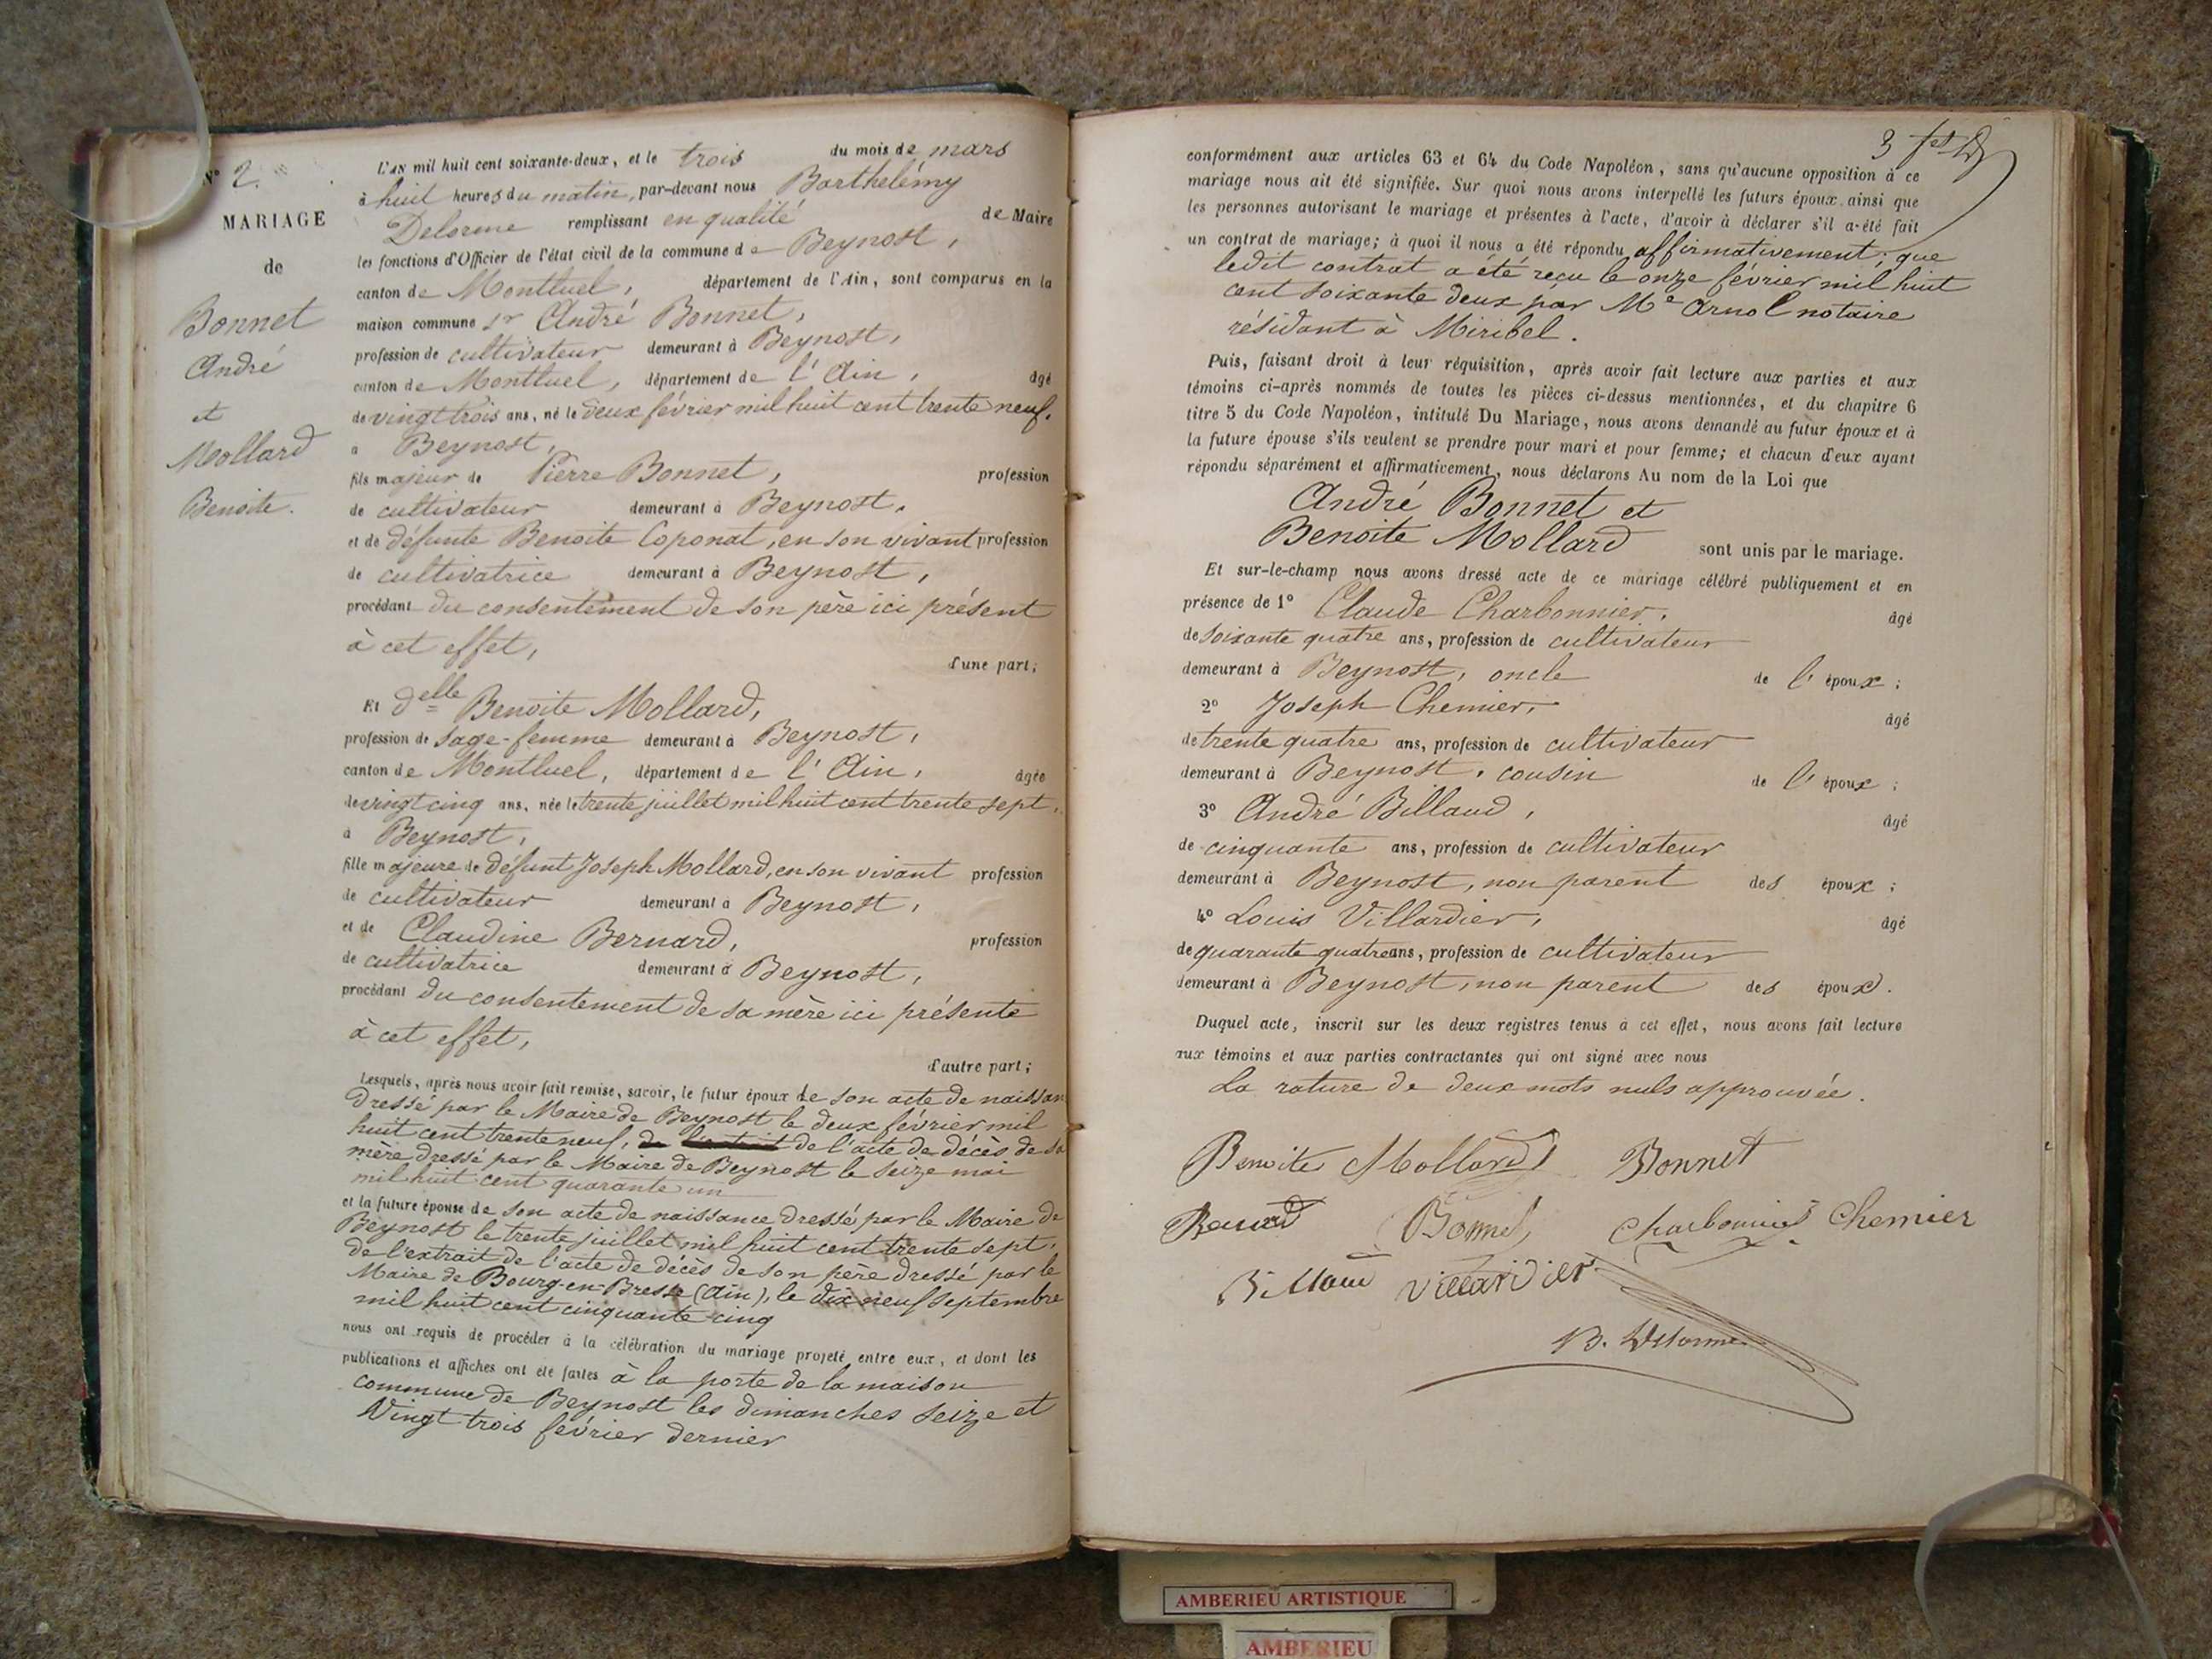 N° 2.
MARIAGE
de
Bonnet
André
et
Mollard
Benoite.
L'AN mil huit cent soixante-deux, et le trois du mois de mars
à huit heures du matin, par-devant nous Barthelémy
Delorme remplissant en qualité de Maire
les fonctions d'Officier de l'état civil de la commune de Beynost,
canton de Montluel, département de l'Ain, sont comparus en la
maison commune sr André Bonnet,
profession de cultivateur demeurant à Beynost,
canton de Montluel, département de l'Ain, âgé
de vingt trois ans, né le deux février mil huit cent trente neuf,
à Beynost,
fils majeur de Pierre Bonnet, profession
de cultivateur demeurant à Beynost,
et de défunte Benoite Coponat, en son vivant profession
de cultivatrice demeurant à Beynost,
procédant du consentement de son père ici présent
à cet effet,
d'une part;
Et delle Benoite Mollard,
profession de sage-femme demeurant à Beynost,
canton de Montluel, département de l'Ain, âgée
de vingt cinq ans, née le trente juillet mil huit cent trente sept,
à Beynost,
fille majeure de défunt Joseph Mollard, en son vivant profession
de cultivateur demeurant à Beynost,
et de Claudine Bernard, profession
de cultivatrice demeurant à Beynost,
procédant du consentement de sa mère ici présente
à cet effet,
d'autre part;
Lesquels, après nous avoir fait remise, savoir, le futur époux de son acte de naissan
dressé par le Maire de Beynost le deux février mil
huit cent trente neuf, de l'acte de décès de sa
mère dressé par le Maire de Beynost le seize mai
mil huit cent quarante un
et la future épouse de son acte de naissance dressé par le Maire de
Beynost le trente juillet mil huit cent trente sept,
de l'extrait de l'acte de décès de son père dressé par le
Maire de Bourg-en-Bresse (Ain), le dix neuf septembre
mil huit cent cinquante-cinq
nous ont requis de procéder à la célébration du mariage projeté entre eux, et dont les
publications et affiches ont été faites à la porte de la maison
commune de Beynost les dimanches seize et
Vingt trois février dernier
conformément aux articles 63 et 64 du Code Napoléon, sans qu'aucune opposition à ce
mariage nous ait été signifiée. Sur quoi nous avons interpellé les futurs époux ainsi que
les personnes autorisant le mariage et présentes à l'acte, d'avoir à déclarer s'il a été fait
un contrat de mariage; à quoi il nous a été répondu affirmativement; que
ledit contrat a été reçu le onze février mil huit
cent soixante deux par Me Arnol notaire
résidant à Miribel.
Puis, faisant droit à leur réquisition, après avoir fait lecture aux parties et aux
témoins ci-après nommés de toutes les pièces ci-dessus mentionnées, et du chapitre 6
titre 5 du Code Napoléon, intitulé Du Mariage, nous avons demandé au futur époux et à
la future épouse s'ils veulent se prendre pour mari et pour femme; et chacun d'eux ayant
répondu séparément et affirmativement, nous déclarons Au nom de la Loi que
André Bonnet et
Benoite Mollard sont unis par le mariage.
Et sur-le-champ nous avons dressé acte de ce mariage célébré publiquement et en
présence de 1° Claude Charbonnier, âgé
de soixante quatre ans, profession de cultivateur
demeurant à Beynost, oncle de l'époux;
2° Joseph Chemier, âgé
de trente quatre ans, profession de cultivateur
demeurant à Beynost, cousin de l'époux;
3° André Billaud, âgé
de cinquante ans, profession de cultivateur
demeurant à Beynost, non parent des époux;
4° Louis Villardier, âgé
de quarante quatre ans, profession de cultivateur
demeurant à Beynost, non parent des époux.
Duquel acte, inscrit sur les deux registres tenus à cet effet, nous avons fait lecture
aux témoins et aux parties contractantes qui ont signé avec nous
La rature de deux mots nuls approuvée.
Benoite Mollard Bonnet
Bernard Bonnet Charbonnier Chemier
Billaud Villardier
B. Delorme
AMBERIEU ARTISTIQUE
AMBERIEU